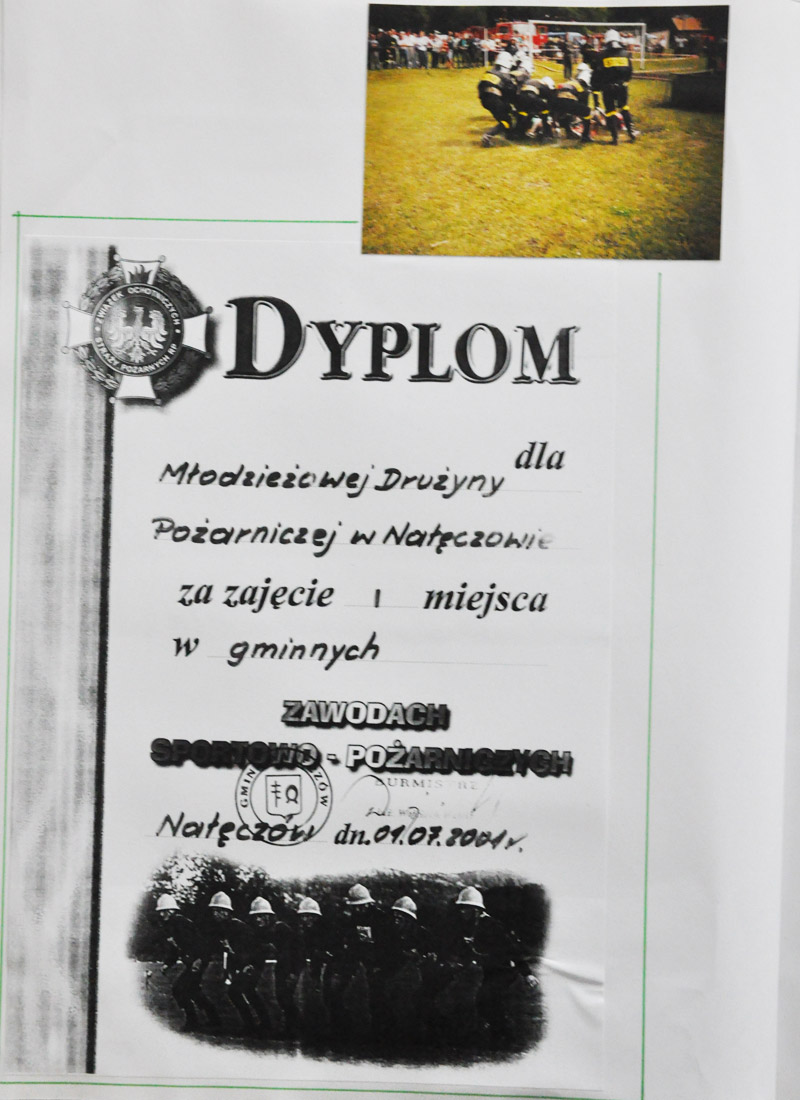 ZWIĄZEK OCHOTNICZYCH
STRAŻY POŻARNYCH RP
DYPLOM
dla
Młodzieżowej Drużyny
Pożarniczej w Nałęczowie
za zajęcie I miejsca
w gminnych
ZAWODACH
SPORTOWO - POŻARNICZYCH
GMINA NAŁĘCZÓW
BURMISTRZ
Nałęczów dn. 01.07.2001r.